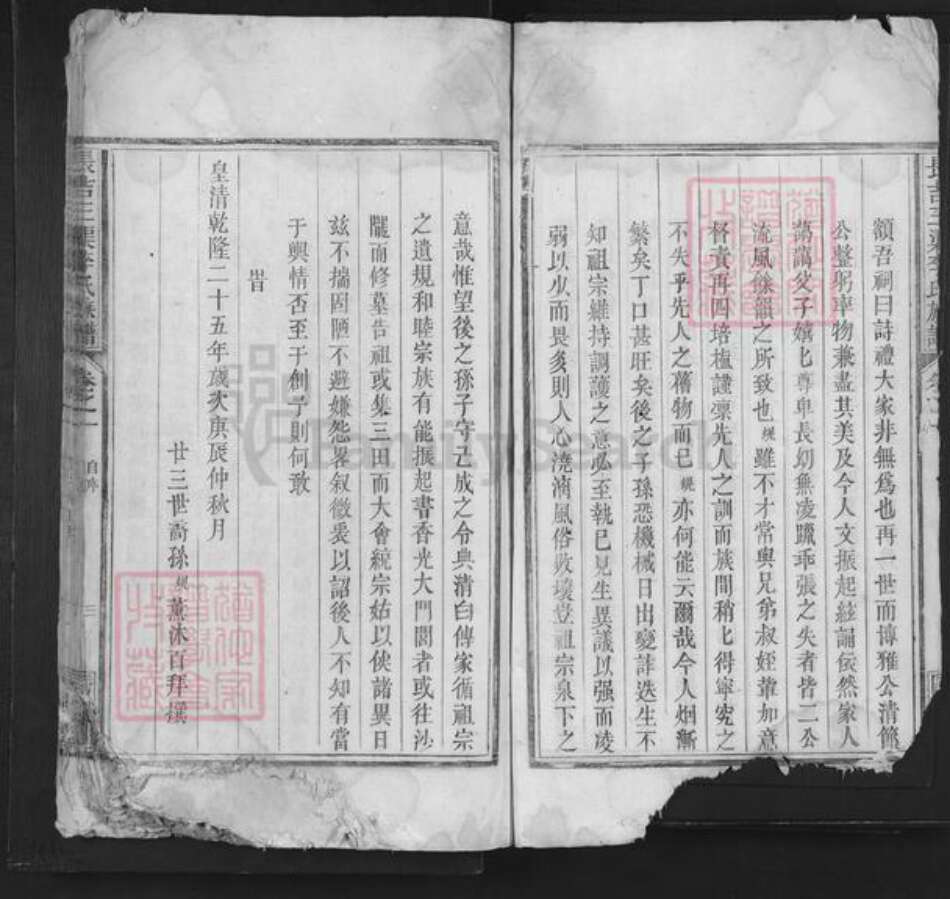 額吾祠曰詩禮大家非無爲也再一世而博雅公清節
公整躬率物兼盡其美及今人文振起絃誦依然家人
藹藹父子嬉匕尊卑長幼無凌躐乖張之失者皆二公
流風餘韻之所致也 雖不才常與兄弟叔姪輩加意
督責再四培植謹稟先人之訓而族間稍匕得寧究之
不失乎先人之舊物而已 亦何能云爾哉今人烟漸
繁矣丁口甚旺矣後之子孫恐機械日出變詐迭生不
知祖宗維持調護之意必至執已見生異議以强而凌
弱以少而畏多則人心澆漓風俗敗壞豈祖宗泉下之
意哉惟望後之孫子守已成之令典清白傳家循祖宗
之遺規和睦宗族有能振起書香光大門閭者或往沙
隴而修墓告祖或集三田而大會統宗姑以俟諸異日
兹不揣固陋不避嫌怨畧叙微衷以詔後人不知有當
于輿情否至于創首則何敢
旹
皇清乾隆二十五年歲次庚辰仲秋月
廿三世裔孫 薰沐百拜撰
李氏族譜
卷之一